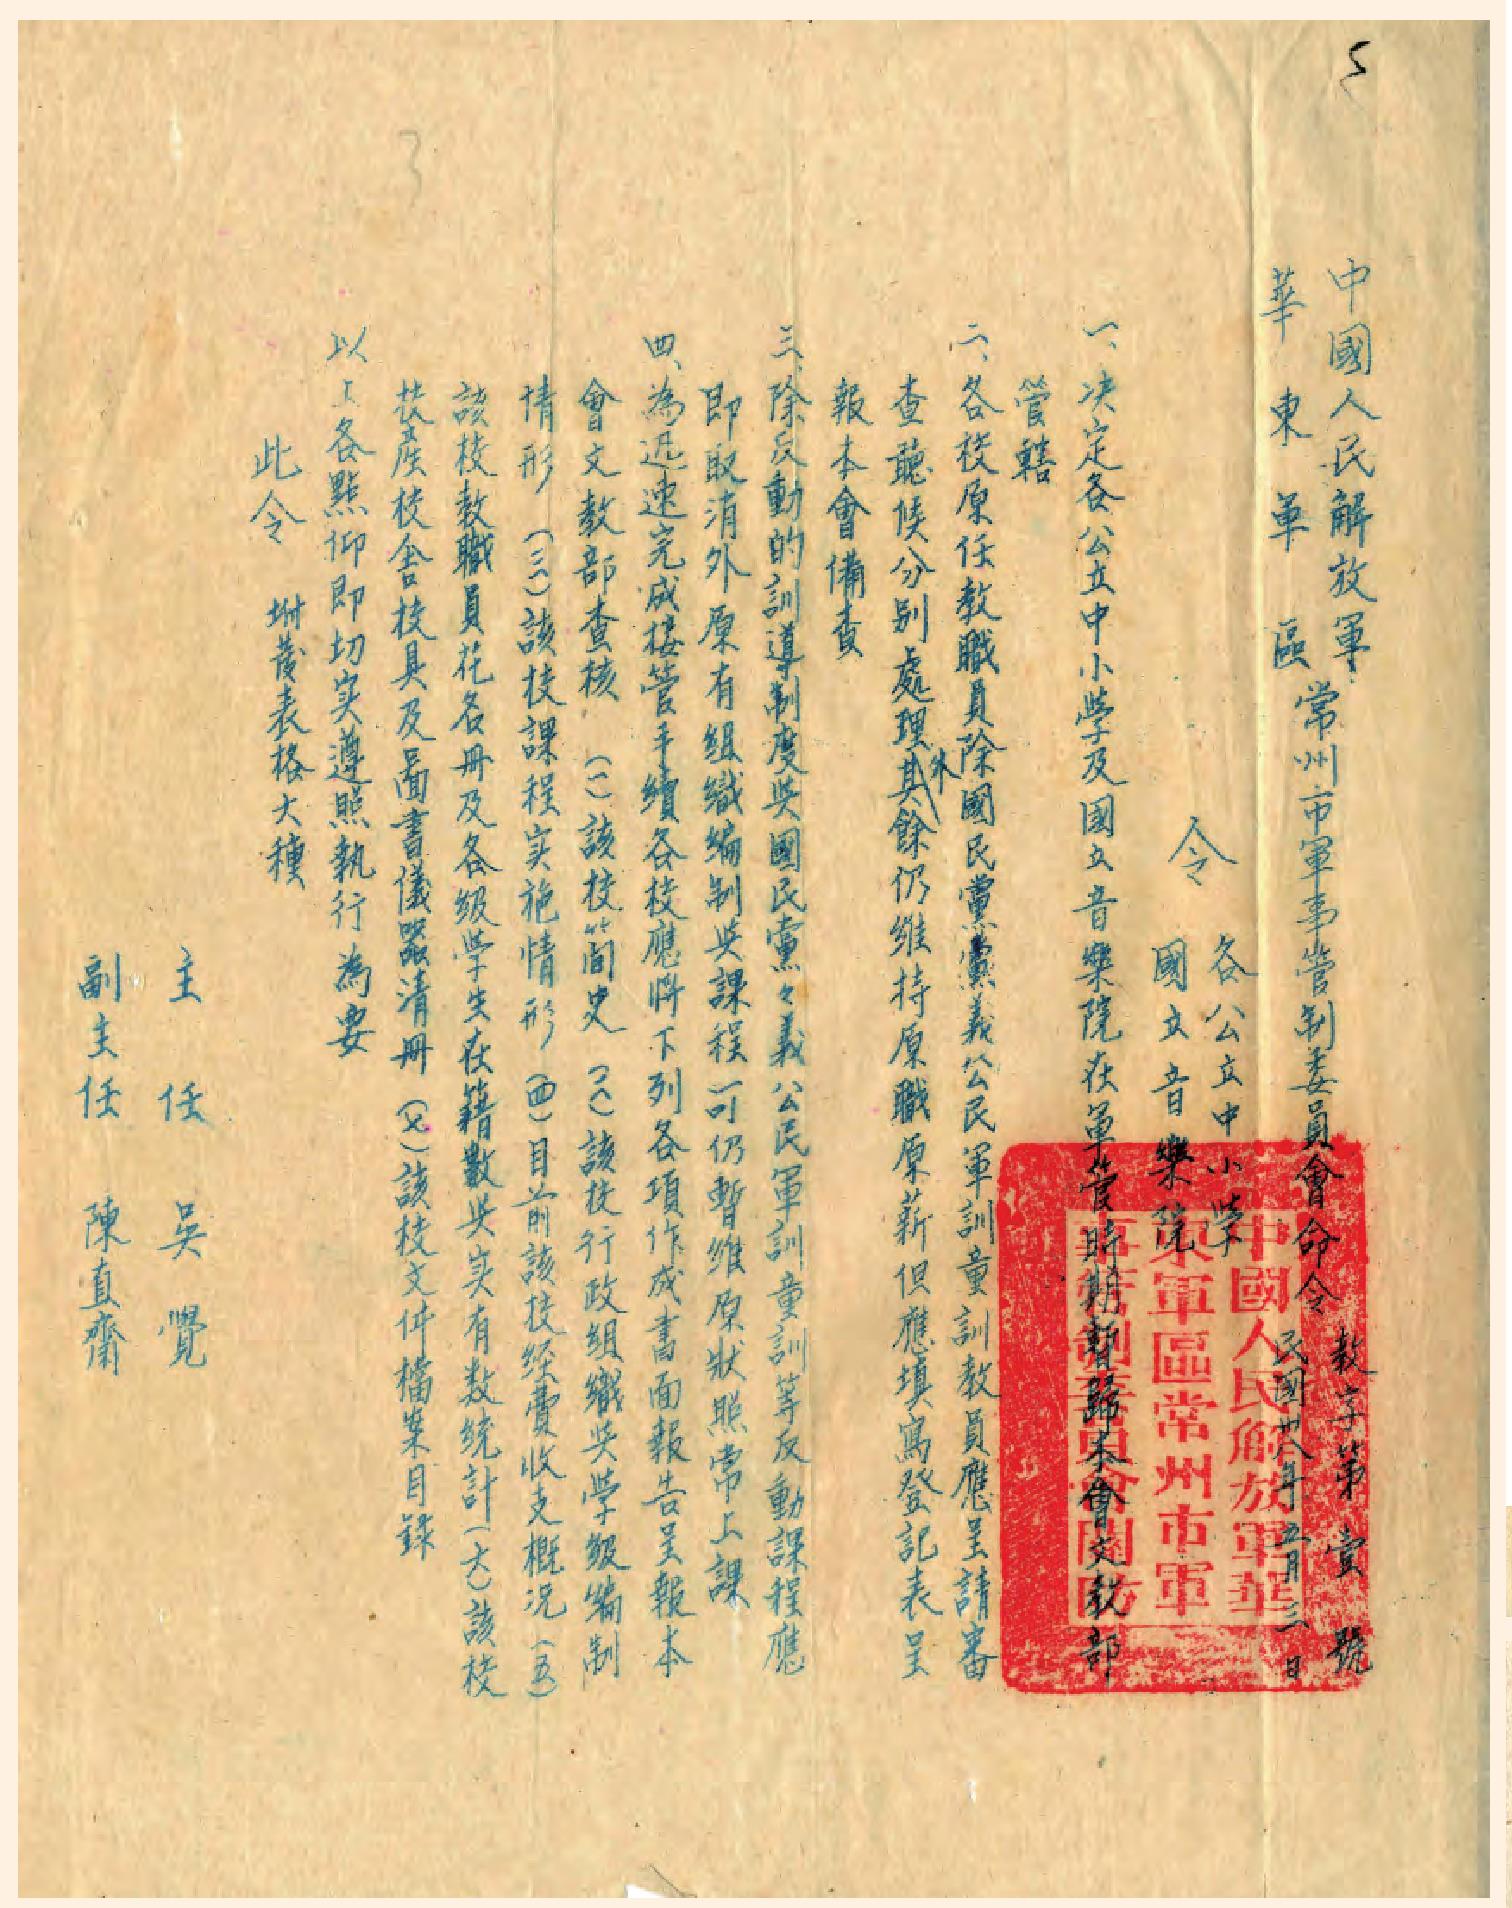 中國人民解放軍
華東軍區
常州市軍事管制委員會命令
教字第壹號
民國卅八年五月三日
令
各公立中小學
國立音樂院
一、决定各公立中小學及國立音樂院在軍管時期暫歸本會文教部
管轄
二、各校原任教職員除國民黨黨義公民軍訓童訓教員應呈請審
查聽候分别處理外其餘仍維持原職原薪但應填寫登記表呈
報本會備查
三、除反動的訓導制度與國民黨々義公民軍訓童訓等反動課程應
即取消外原有組織編制與課程一可仍暫維原狀照常上課
四、為迅速完成接管手續各校應將下列各項作成書面報告呈報本
會文教部查核 (一)該校簡史 (二)該校行政組織與學級編制
情形 (三)該校課程实施情形 (四)目前該校經費收支概况 (五)
該校教職員花名册及各級学生在籍數與实有数統計 (六)該校
校產校舍校具及圖書儀器清冊 (七)該校文件檔案目錄
以上各點仰即切实遵照執行為要
此令 坿發表格六種
主任 吳覺
副主任 陳直齋
中國人民解放軍華
東軍區常州市軍
事管制委員會關防
3